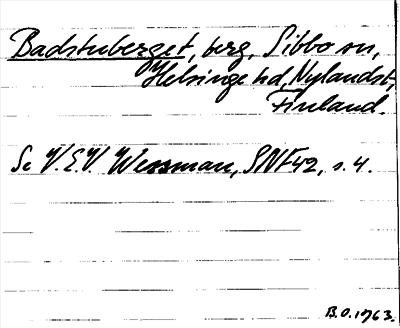 Badstuberget, berg, Sibbo sn,
Helsinge hd, Nylands l.,
Finland.
Se V.E.V. Wessman, SNF 42, s. 4.
B.O. 1963.